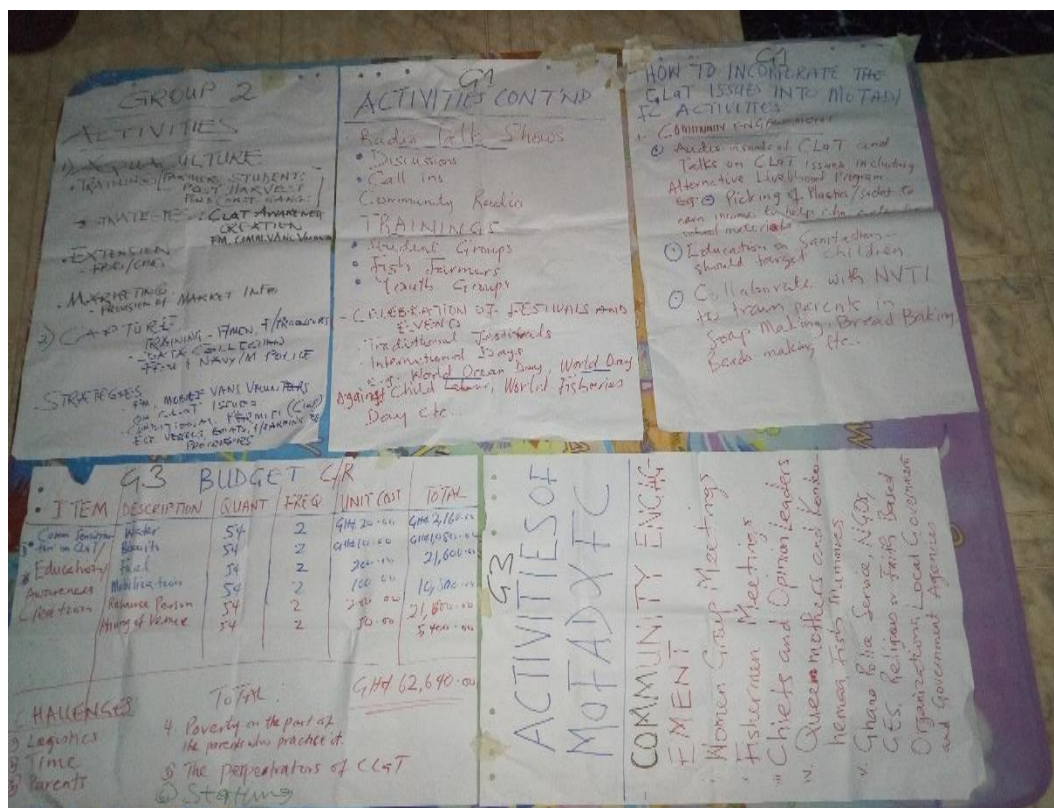 GROUP 2
ACTIVITIES
1) AQUACULTURE
• TRAINING / FARMERS, STUDENTS
POST HARVEST
• STRATEGIES: CLAT AWARENESS
CREATION
• EXTENSION
• MARKETING
- PROVISION OF MARKET INFO
2) CAPTURE
TRAINING -
- DATA COLLECTION
NAVY/M POLICE
STRATEGIES
- FM, MOBILE VANS
ON CLAT ISSUES
G1
ACTIVITIES CONT'ND
Radio Talk Shows
• Discussions
• Call ins
Community Radio
TRAININGS
• Student Groups
• Fish Farmers
• Youth Groups
- CELEBRATION OF FESTIVALS AND
EVENTS
- Traditional Festivals
- International Days
e.g. World Ocean Day, World Day
Against Child Labour, World Fisheries
Day etc..
G1
HOW TO INCORPORATE THE
CLaT ISSUES INTO MOFAD/
FC ACTIVITIES
COMMUNITY ENGAGEMENT
Audio visuals of CLaT and
Talks on CLaT issues including
Alternative Livelihood Program
Eg: Picking of Plastics/sachet to
earn income to help
school materials
Education on Sanitation -
should target children
Collaborate with NVTI
to train parents in
Soap Making, Bread Baking,
Beads making etc..
G3 BUDGET C/R
ITEM DESCRIPTION QUANT FREQ UNIT COST TOTAL
Water 54 2 GH¢ 20.00 GH¢ 2,160.00
Biscuits 54 2 GH¢ 10.00 GH¢ 1,080.00
Fuel 54 2 200.00 21,600.00
Mobilization 54 2 100.00 10,800.00
Resource Person 54 2 200.00 21,600.00
Hiring of Venue 54 2 50.00 5,400.00
on CLaT/
Education/
Awareness
Creation
TOTAL GH¢ 62,640.00
CHALLENGES
1) Logistics
2) Time
3) Parents
4. Poverty on the part of
the parents who practice it.
5) The perpetrators of CLaT
G3
ACTIVITIES OF
MOFAD & FC
COMMUNITY ENGAG-
EMENT
i Women Group Meetings
ii Fishermen Meetings
iii Chiefs and Opinion Leaders
iv. Queenmothers and Konko-
hemaa Fish Mummies
v. Ghana Police Service, NGOs,
GES, Religious or Faith Based
Organizations, Local Government
and Government Agencies